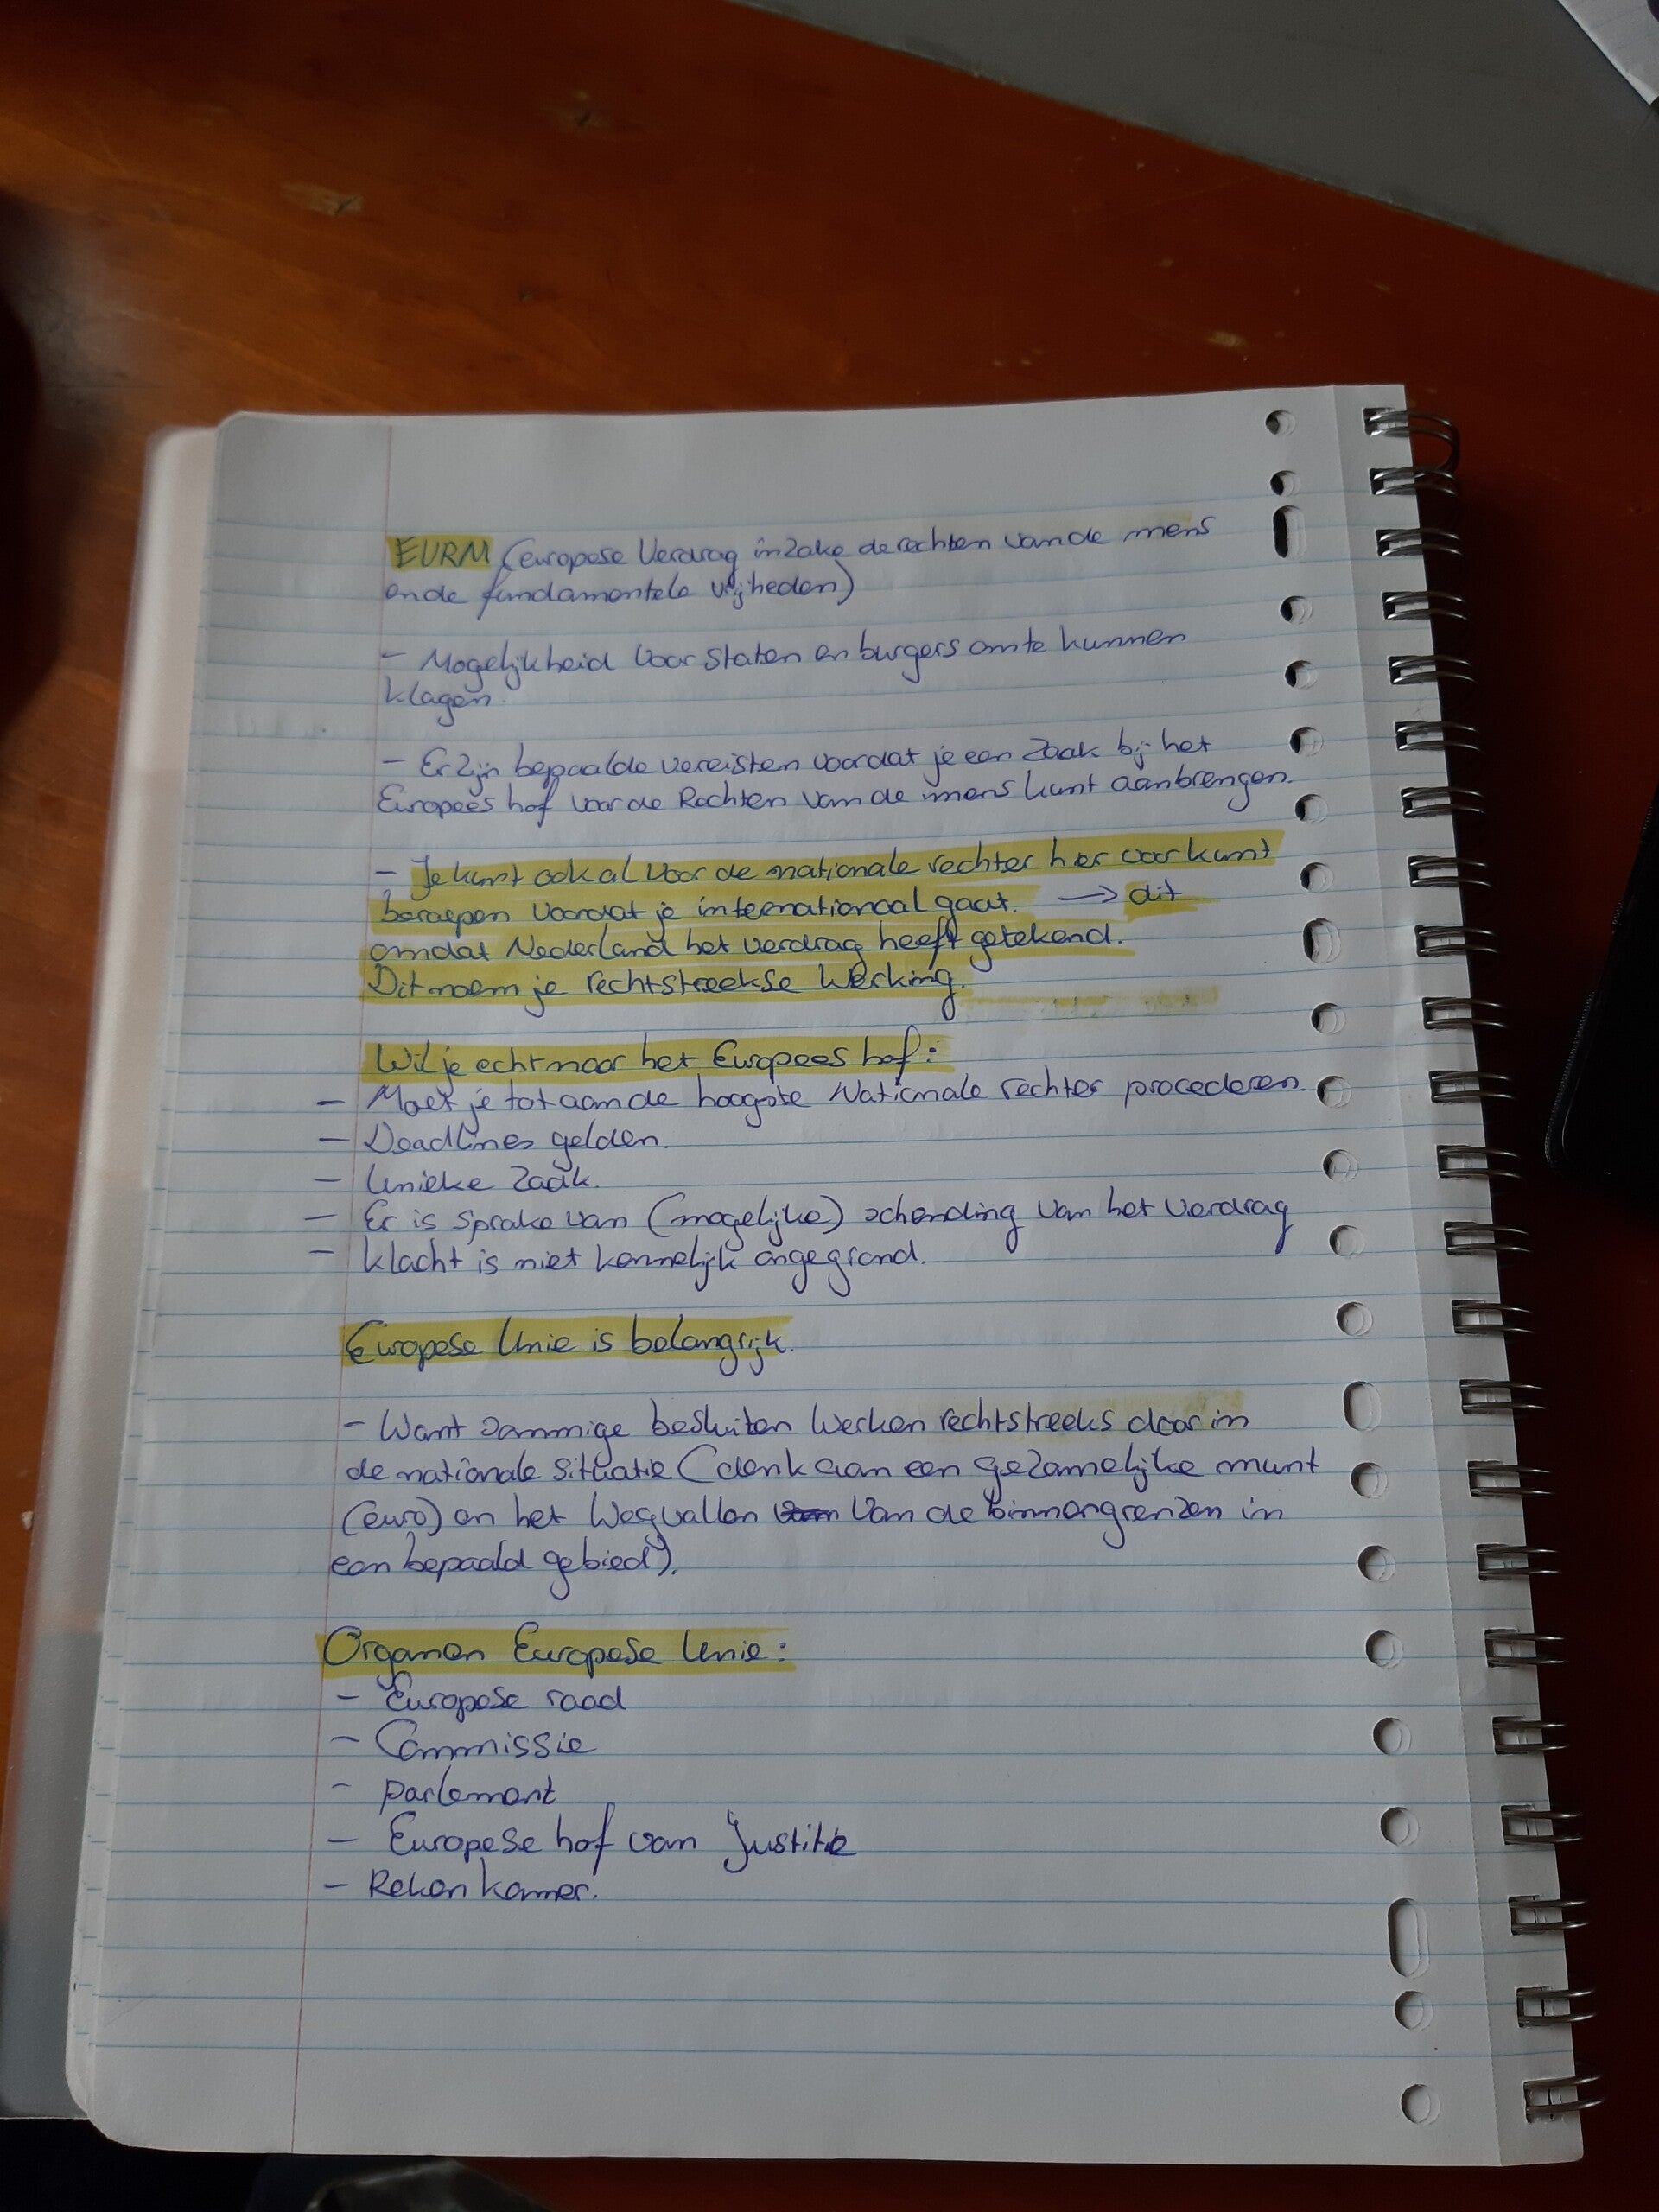 EVRM (europese Verdrag inzake de rechten van de mens
en de fundamentele vrijheden)
- Mogelijkheid voor Staten en burgers om te kunnen
klagen.
- Er zijn bepaalde vereisten voordat je een zaak bij het
Europees hof voor de Rechten van de mens kunt aanbrengen.
- Je kunt ook al voor de nationale rechter hier voor kunt
beroepen voordat je internationaal gaat. → dit
omdat Nederland het verdrag heeft getekend.
Dit noem je rechtstreekse werking.
Wil je echt naar het Europees hof:
- Moet je tot aan de hoogste Nationale rechter procederen.
- Deadlines gelden.
- Unieke zaak.
- Er is sprake van (mogelijke) schending van het verdrag
- klacht is niet kennelijk ongegrond.
Europese Unie is belangrijk.
- Want sommige besluiten werken rechtstreeks door in
de nationale situatie (denk aan een gezamelijke munt
(euro) en het wegvallen van de binnengrenzen in
een bepaald gebied).
Organen Europese Unie:
- Europese raad
- Commissie
- parlement
- Europese hof van Justitie
- Rekenkamer.